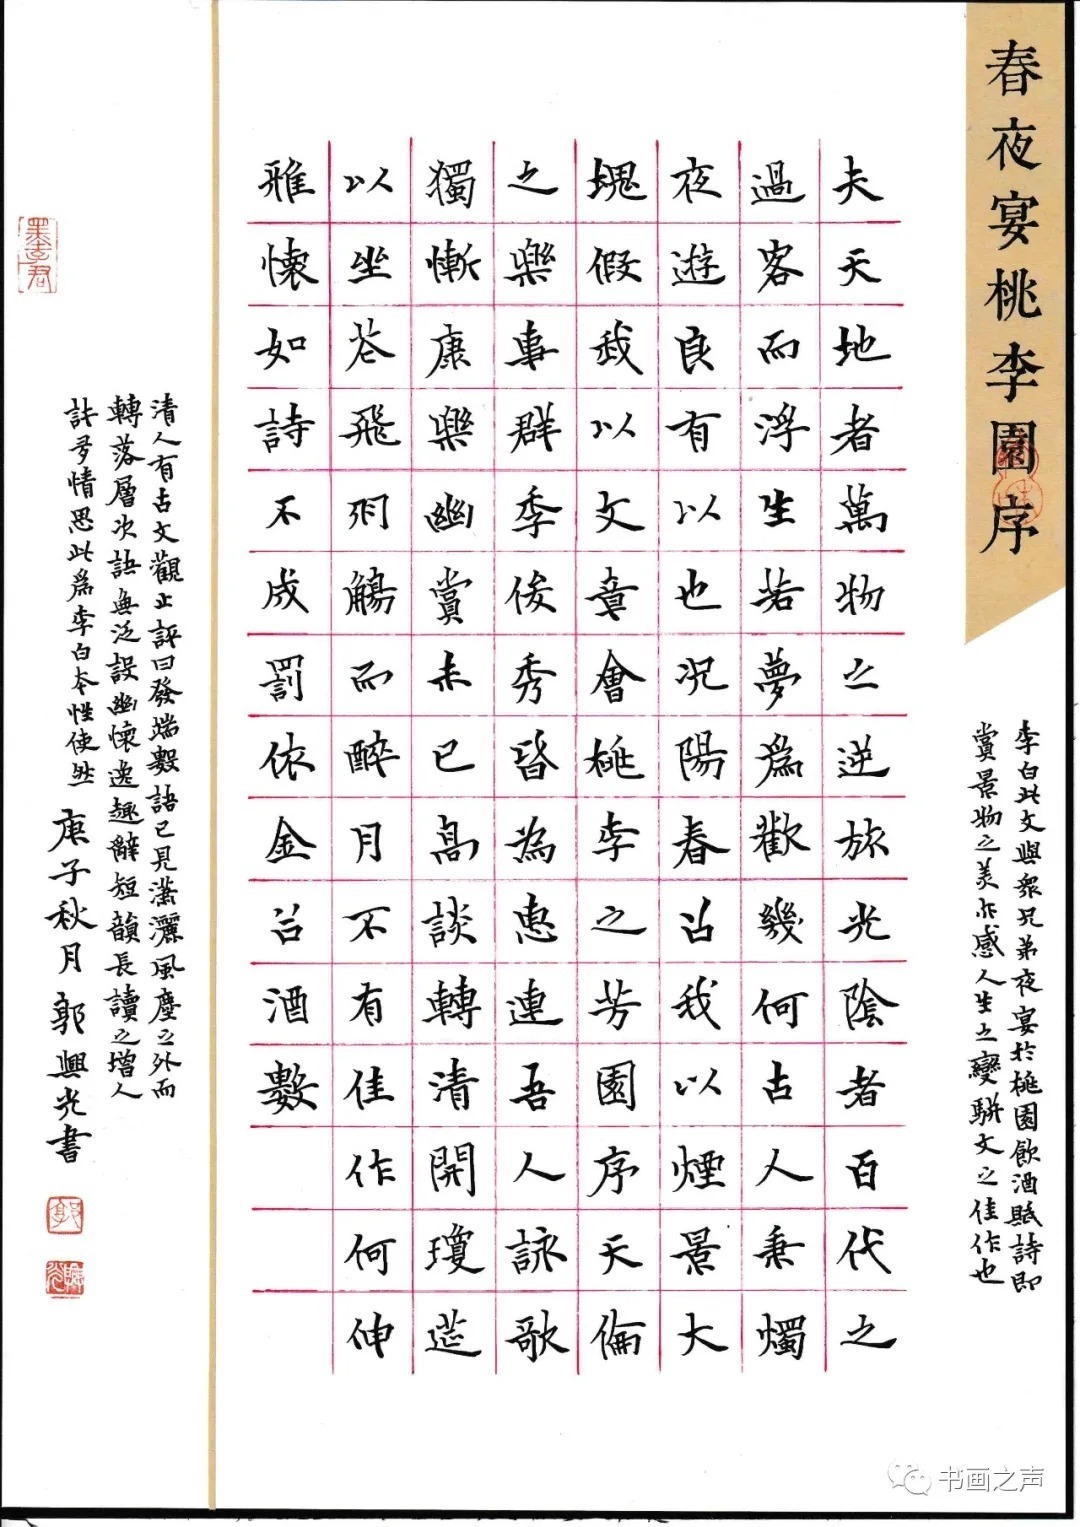 春夜宴桃李園序
李白此文與衆兄弟夜宴於桃園飲酒賦詩即
賞景物之美亦感人生之變駢文之佳作也
夫天地者萬物之逆旅光陰者百代之
過客而浮生若夢爲歡幾何古人秉燭
夜遊良有以也況陽春召我以煙景大
塊假我以文章會桃李之芳園序天倫
之樂事群季俊秀皆為惠連吾人詠歌
獨慚康樂幽賞未已高談轉清開瓊筵
以坐花飛羽觴而醉月不有佳作何伸
雅懷如詩不成罰依金谷酒數
清人有古文觀止評曰發端數語已見瀟灑風塵之外而
轉落層次語無泛設幽懷逸趣辭短韻長讀之增人
許多情思此爲李白本性使然
庚子秋月郭興光書
郭
興光
书画之声